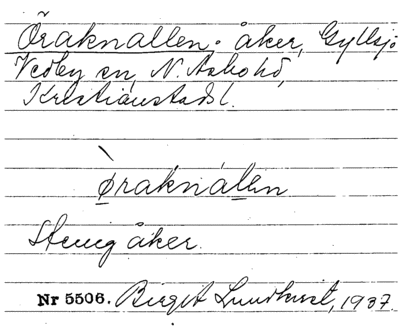 Öraknallen: åker, Gyllsjö
Vedby sn, N. Åsbo hd,
Kristianstads l.
Ø̀raknálen
Stenig åker.
Nr 5506. Birgit Lundkvist, 1937.